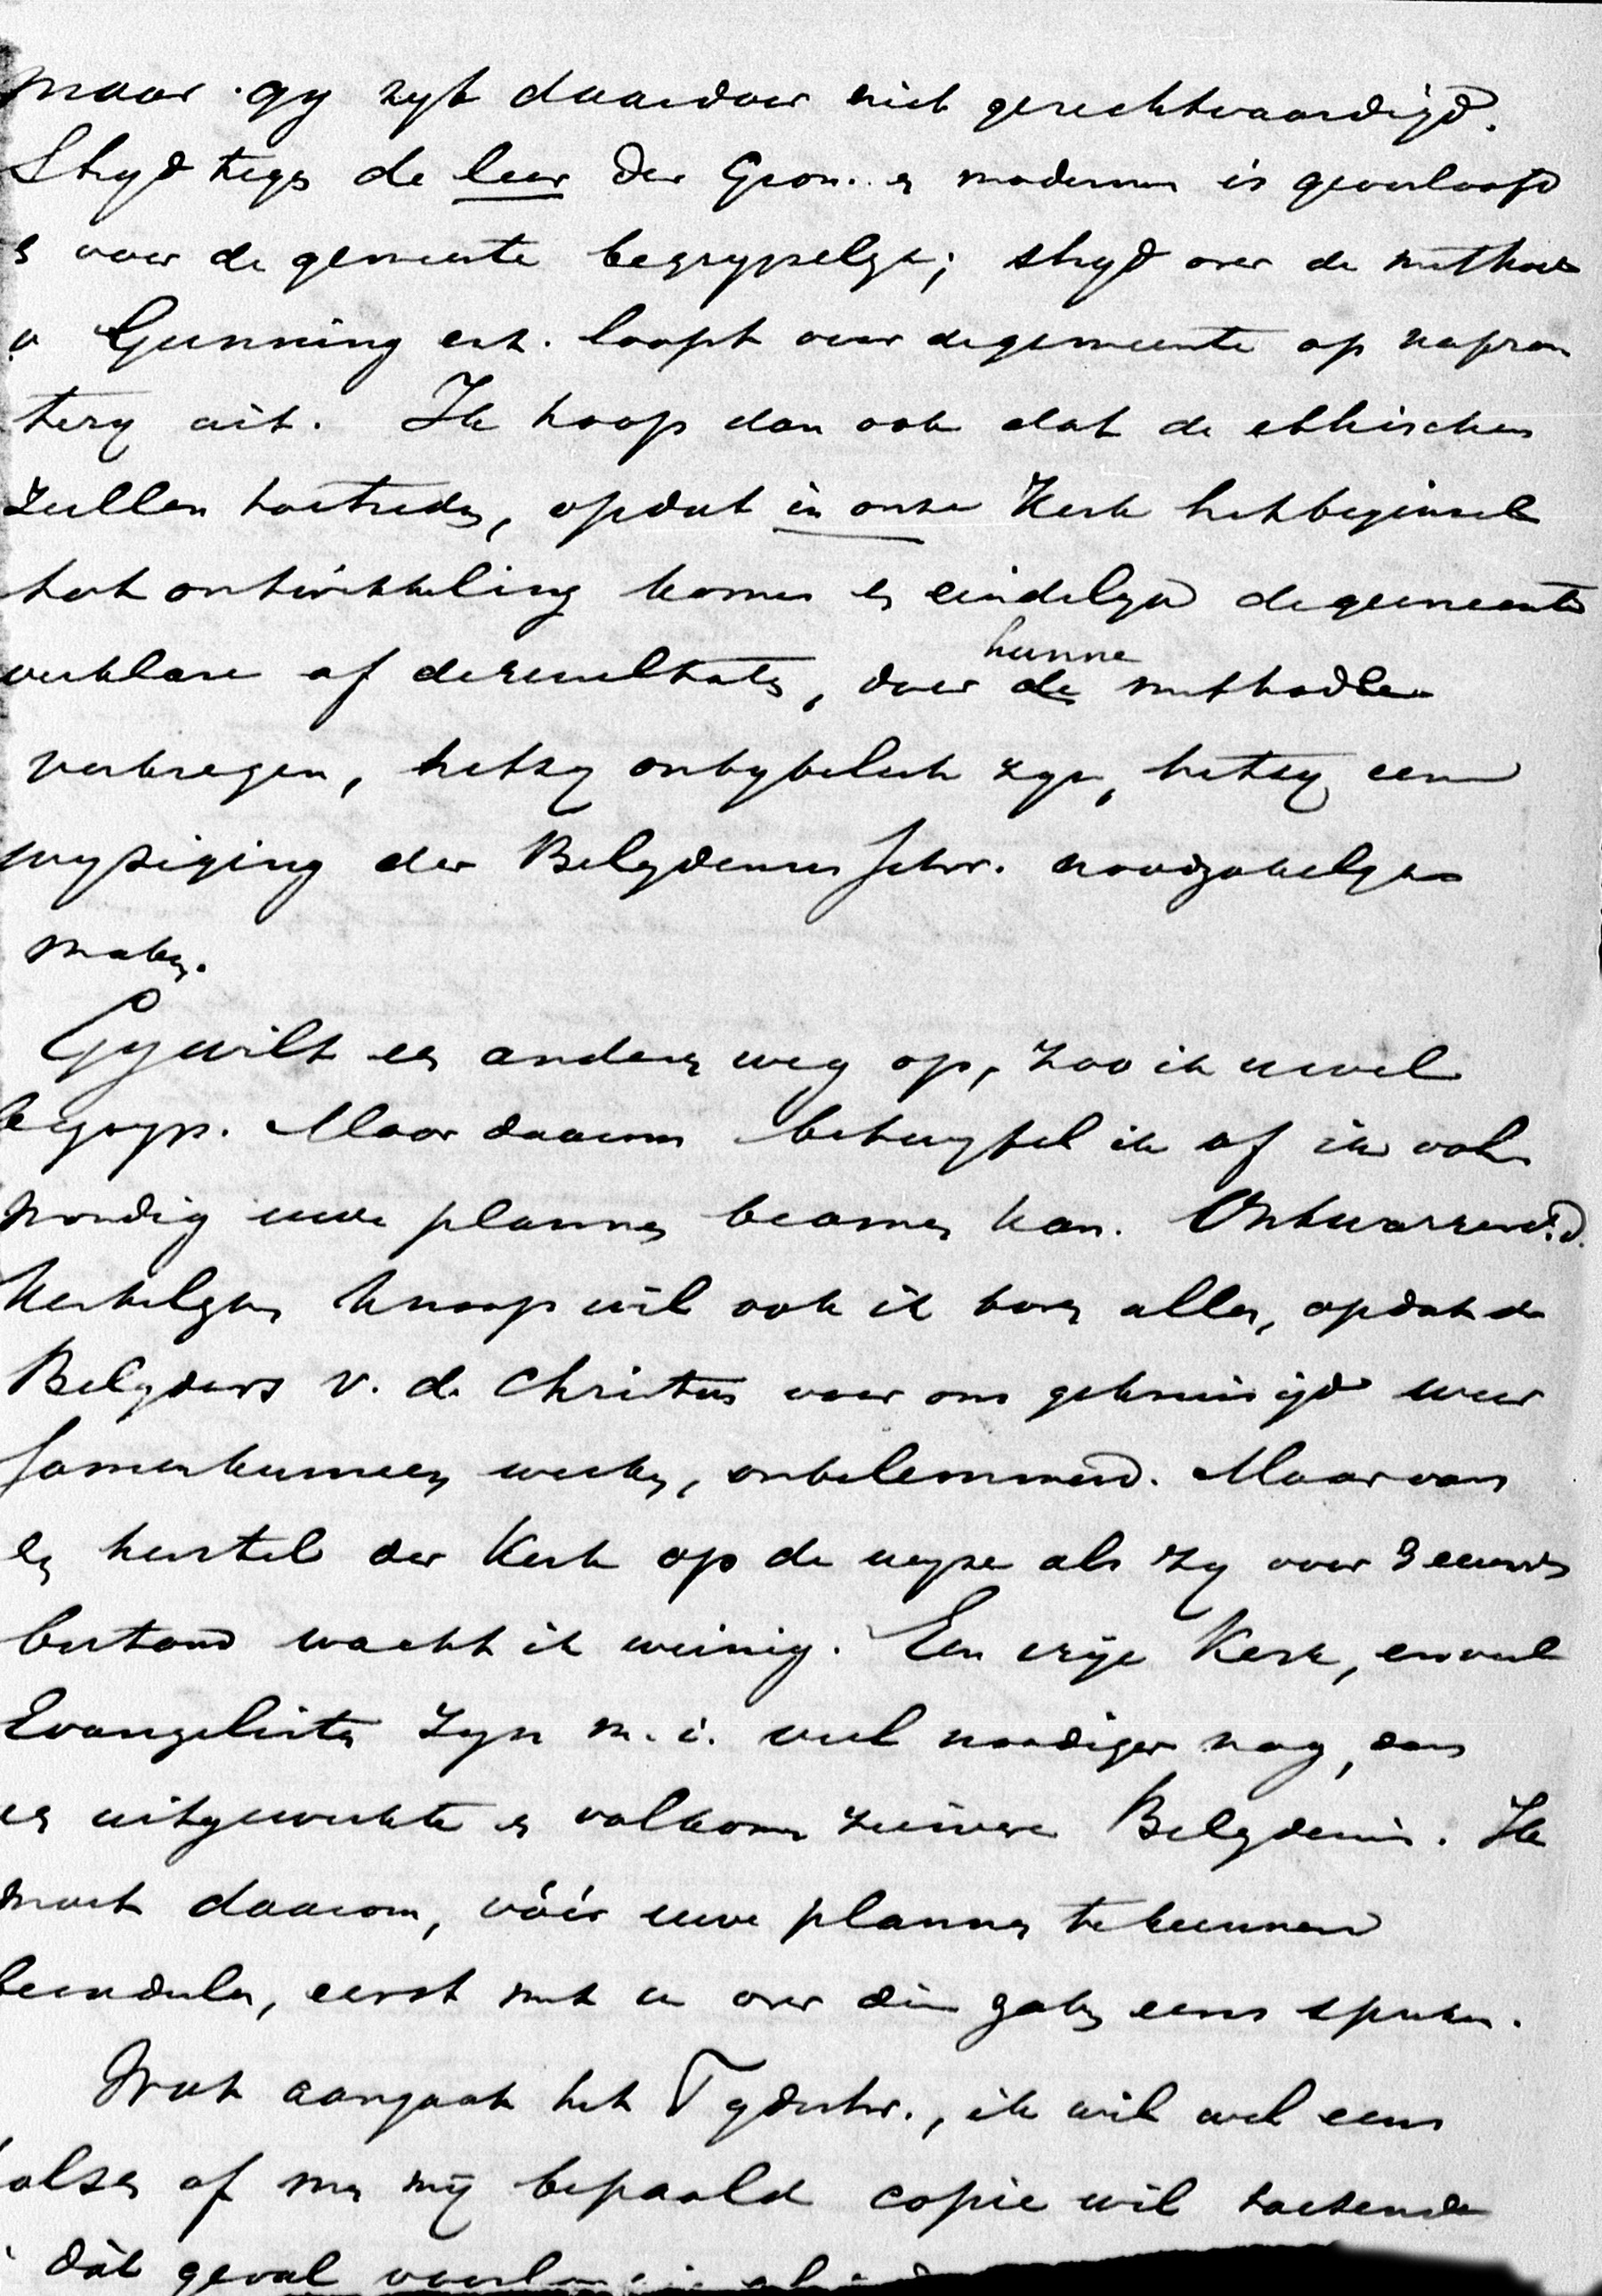 maar gy zyt daardoor niet gerechtvaardigd.
Stryd tegen de leer der Gron. en modernen is geoorloofd
en voor de gemeente begrypelyk; stryd over de methode
v Gunning est. loopt voor de gemeente op napra
tery uit. Ik hoop dan ook dat de ethischen
zullen toetreden, opdat in onze Kerk het beginsel
tot ontwikkeling kome en eindelyk de gemeente
verklare of de resultaten, door de hunne methode
verkregen, hetzy onbybelsch zyn, hetzy een
wyziging der Belydenisschr. noodzakelyk
maken.
Gy wilt een anderen weg op, zoo ik u wel
begryp. Maar daarom betwyfel ik of ik vol
mondig uwe plannen beamen kan. Ontwarren v. d.
Kerkelyken knoop wil ook ik boven alles, opdat de
Belyders v. de Christus voor ons gekruisigd weer
samen kunnen werken, onbelemmerd. Maar van
een herstel der Kerk op de wyze als zy voor 3 eeuwen
bestond wacht ik weinig. Een vrije Kerk, en veel
Evangelisten zyn m. i. veel noodiger nog, dan
een uitgewerkte en volkomen zuivere Belydenis. Ik
moet daarom, vóór uwe plannen te kunnen
beoordeelen, eerst met u over die zaken eens spreken.
Wat aangaat het Tydschr., ik wil wel eens
of men mij bepaald copie wil toezenden
dàt geval